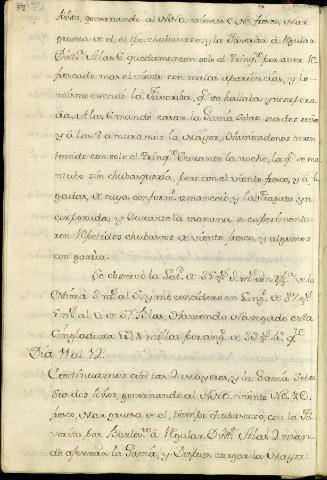 rizos, governando al NNO. viento ENE fresco, Mar
gruesa de el, el tpo. chubascoso, y la Favorita á Regular
Dist.ª A las 6 quedamos con solo el Trinq.te por aver re
frescado mas el viento con malas apariencias, y lo
mismo executó la Favorita, q.e se hallaba yncorpora
da. A las 6 mandó cazar la Gavia sobre sus dos rizos
y á las 8 amaramos la Mayor, Haviendonos man
tenido con solo el Trinq.te Durante la noche, la q.e se man
tubo sin chubasqueria, pero con el viento fresco, y á lu
gadas, de cuyo conform. amaneció y la Fragata yn
corporada; y Durante la mañana se experimenta
ron Repetidos chubascos de viento fresco, y algunos
con garúa.
Se observó la Lat. de
la
Estima al S. y me considero en Long. de
al O. de Sn. Blas, Haviendo Navegado esta
Singladura millas por ang.
Dia 11 al 12.
Continuamos con las 2 Mayores, y la Gavia sobre
sus dos rizos, governando al NNO. viento NE.
fresco, Mar gruesa de el, tiempo chubascoso, con la Fa
vorita por Barlov.to á Regular Dist.ª A las 2 man
dé aferrar la Gavia, y Despues cargar la Mayor